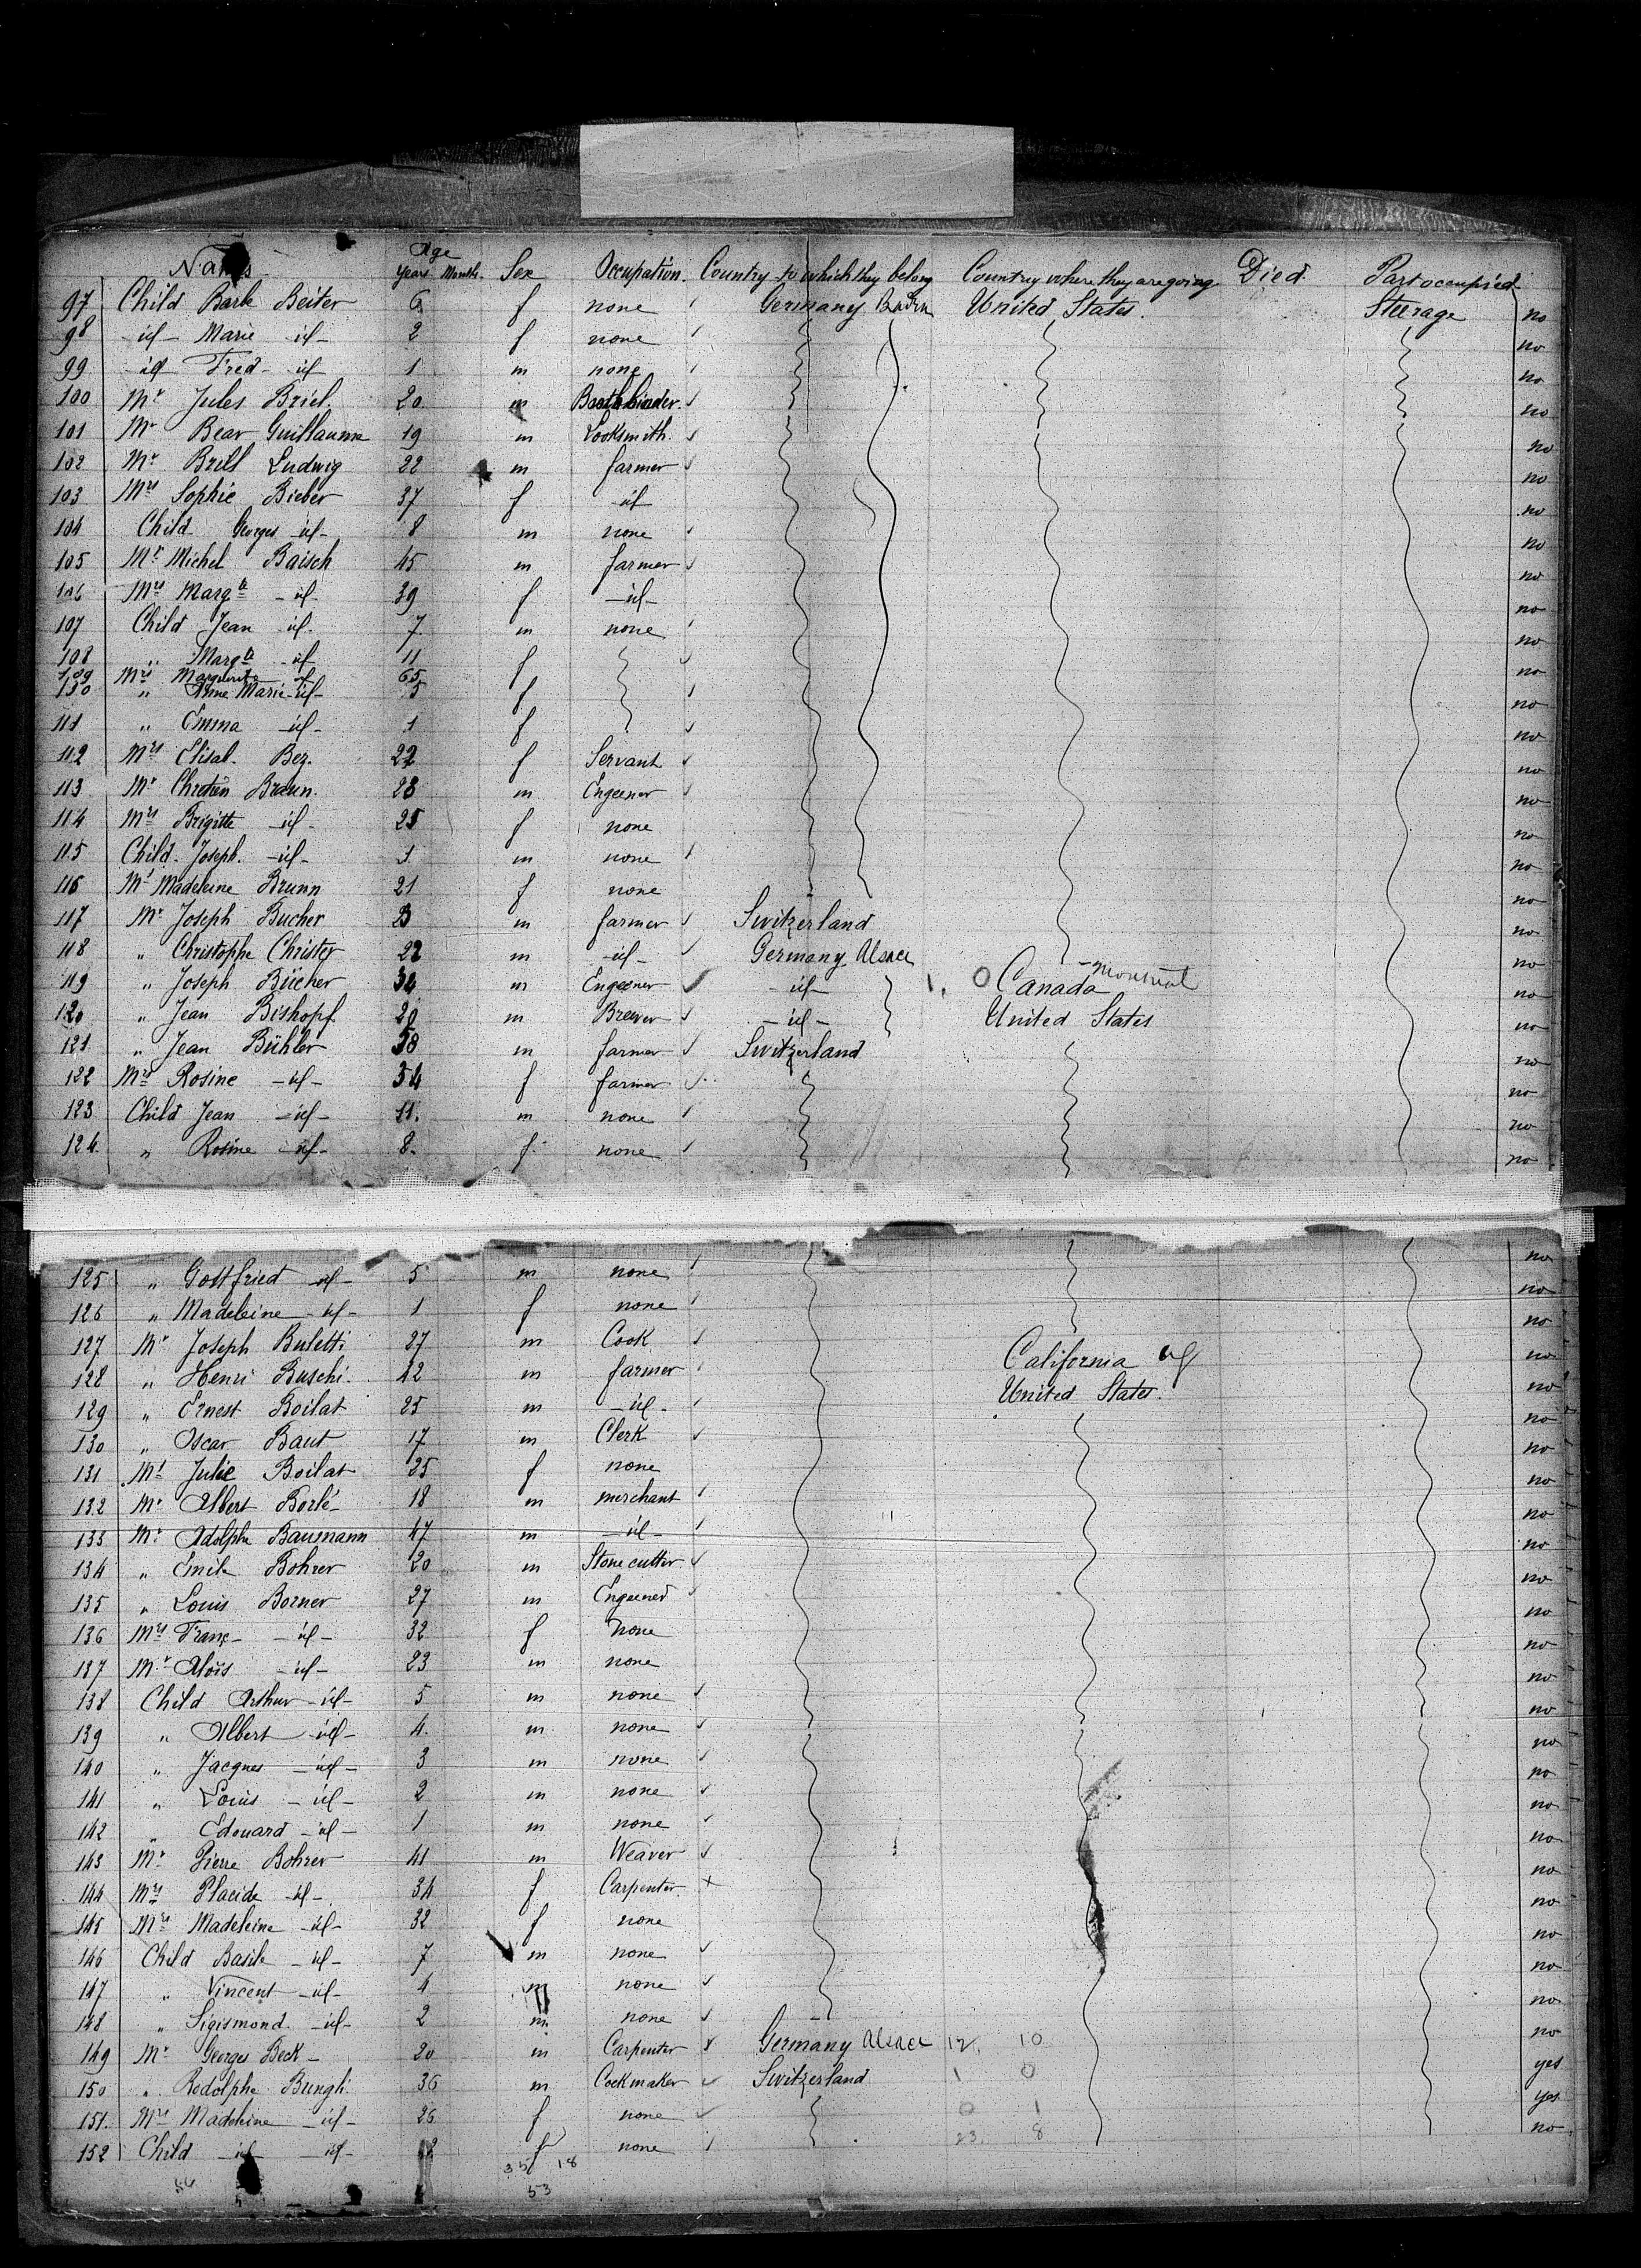 Names Age years Months. Sex Occupation. Country to which they belong Country where they are going. Died. Part occupied
97 Child Barb Beiter 6 f none Germany Baden United States. Steerage no
98 id Marie id 2 f none no
99 id Fred id 1 m none no
100 Mr Jules Briel. 20 m no
101 Mr Bear Guillaume 19 m Locksmith. no
102 Mr Brill Ludwig 22 m farmer no
103 Mrs Sophie Bieber 37 f id no
104 Child Georges id 8 m none no
105 Mr Michel Baisch 45 m farmer no
106 Mrs Margte id 39 f id no
107 Child Jean id. 7 m none no
108 " Margte id 11 f no
109 Mrs Marguerite id 65
110 " Anne Marie id 5 f no
111 " Emma id 1 f no
112 Mrs Elisab. Bez. 22 f Servant no
113 Mr Chretien Braun. 28 m Engeener no
114 Mrs Brigitte id 25 f none no
115 Child. Joseph. id 1 m none no
116 Ms Madeleine Brunn 21 f none no
117 Mr Joseph Bucher m farmer Switzerland no
118 " Christophe Christey 22 m id Germany Alsace no
119 " Joseph Bücher 34 m Engeener id Canada Montreal no
120 " Jean Bishopf 20 m Brewer id United States no
121 " Jean Bühler 38 m farmer Switzerland no
122 Mrs Rosine id 34 f farmer no
123 Child Jean id 11. m none no
124. " Rosine id 8. f. none no
125 " Gottfried id 5 m none no
126 " Madeleine id 1 f none no
127 Mr Joseph Buletti 27 m Cook California no
128 " Henri Buschi. 42 m farmer United States. no
129 " Ernest Boilat 25 m id no
130 " Oscar Baut 17 m Clerk no
131 Ms Julie Boilat 25 f none no
132 Mr Albert Borlé 18 m merchant no
133 Mr Adolphe Baumann 47 m id no
134 " Emile Bohrer 20 m Stone cutter no
135 " Louis Borner 27 m Engeener no
136 Mrs Franç id 32 f None no
137 Mr Aloïs id 23 m none no
138 Child Arthur id 5 m none no
139 " Albert id 4. m none no
140 " Jacques id 3 m none no
141 " Louis id 2 m none no
142 " Edouard id 1 m none no
143 Mr Pierre Bohrer 41 m Weaver no
144 Mrs Placide id 34 f Carpenter no
145 Mrs Madeleine id 32 f none no
146 Child Basile id 7 m none no
147 " Vincent id 4 m none no
148 " Sigismond id 2 m none no
149 Mr Georges Beck 20 m Carpenter Germany Alsace 12. 10 yes
150 " Rodolphe Bungli 36 m Cockmaker Switzerland 1 0 yes
151. Mrs Madeleine id 26 f none 0 1 no
152 Child id id f none 23. 8
35 18
53